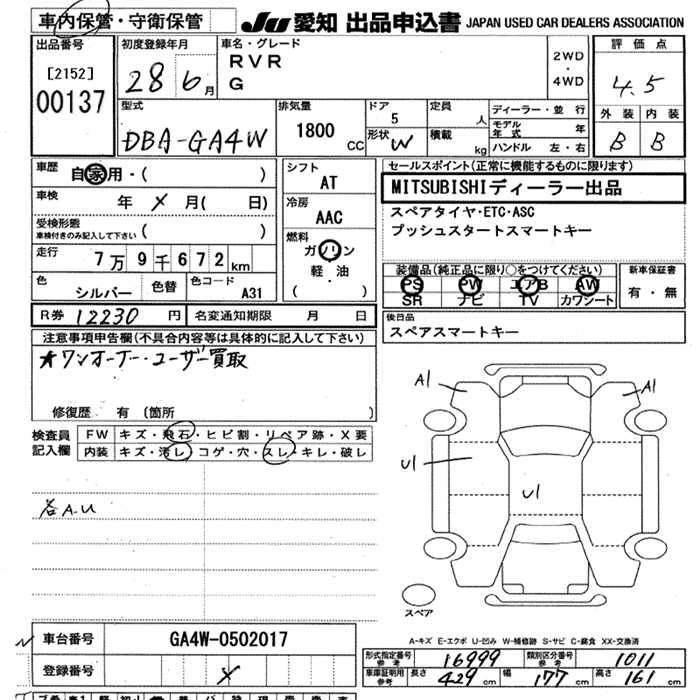 車内保管・守衛保管
JU 愛知 出品申込書 JAPAN USED CAR DEALERS ASSOCIATION
出品番号
[2152]
00137
初度登録年月
28 6月
車名・グレード
RVR
G
2WD
・
4WD
評価点
4.5
外装 内装
B B
型式
DBA-GA4W
排気量
1800 CC
ドア
5
形状
W
定員
人
積載
kg
ディーラー・並行
モデル年式 年
ハンドル 左・右
車歴
自家用・( )
車検
年 メ 月( 日)
受検形態
車検付きのみ記入して下さい ( )
走行
7万9千672km
色
シルバー
色替
色コード
A31
シフト
AT
冷房
AAC
燃料
ガソリン
軽・油
( )
セールスポイント(正常に機能するものに限ります)
MITSUBISHIディーラー出品
スペアタイヤ・ETC・ASC
プッシュスタートスマートキー
装備品(純正品に限り○をつけてください)
PS PW エアB AW
SR ナビ TV カワシート
新車保証書
有・無
後日品
スペアスマートキー
R券 12230円
名変通知期限 月 日
注意事項申告欄(不具合内容等は具体的に記入して下さい)
★ワンオーナー・ユーザー買取
修復歴 有(箇所 )
検査員
記入欄
FW キズ・飛石・ヒビ割・リペア跡・X要
内装 キズ・汚レ・コゲ・穴・スレ・キレ・破レ
各A.U
A1
A1
U1
U1
スペア
A-キズ E-エクボ U-凹み W-補修跡 S-サビ C-腐食 XX-交換済
車台番号
GA4W-0502017
登録番号
メ
形式指定番号
参考
16999
類別区分番号
参考
1011
車庫証明用
参考
長さ 429cm 幅 177cm 高さ 161cm